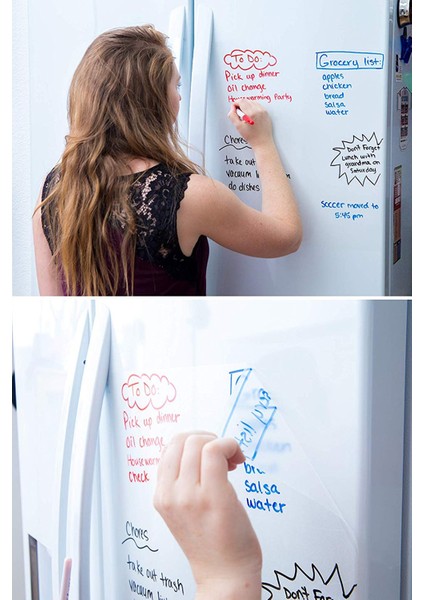 To Do:
Pick up dinner
Oil change
Housewarming Party
Grocery list:
apples
chicken
bread
salsa
water
Chores
take out
vacuum l
do dishes
Don't Forget
Lunch with
grandma on
Saturday
Soccer moved to
5:45 pm
To Do:
Pick up dinner
Oil change
Housewarm
Check
salsa
water
Chores
take out trash
Don't